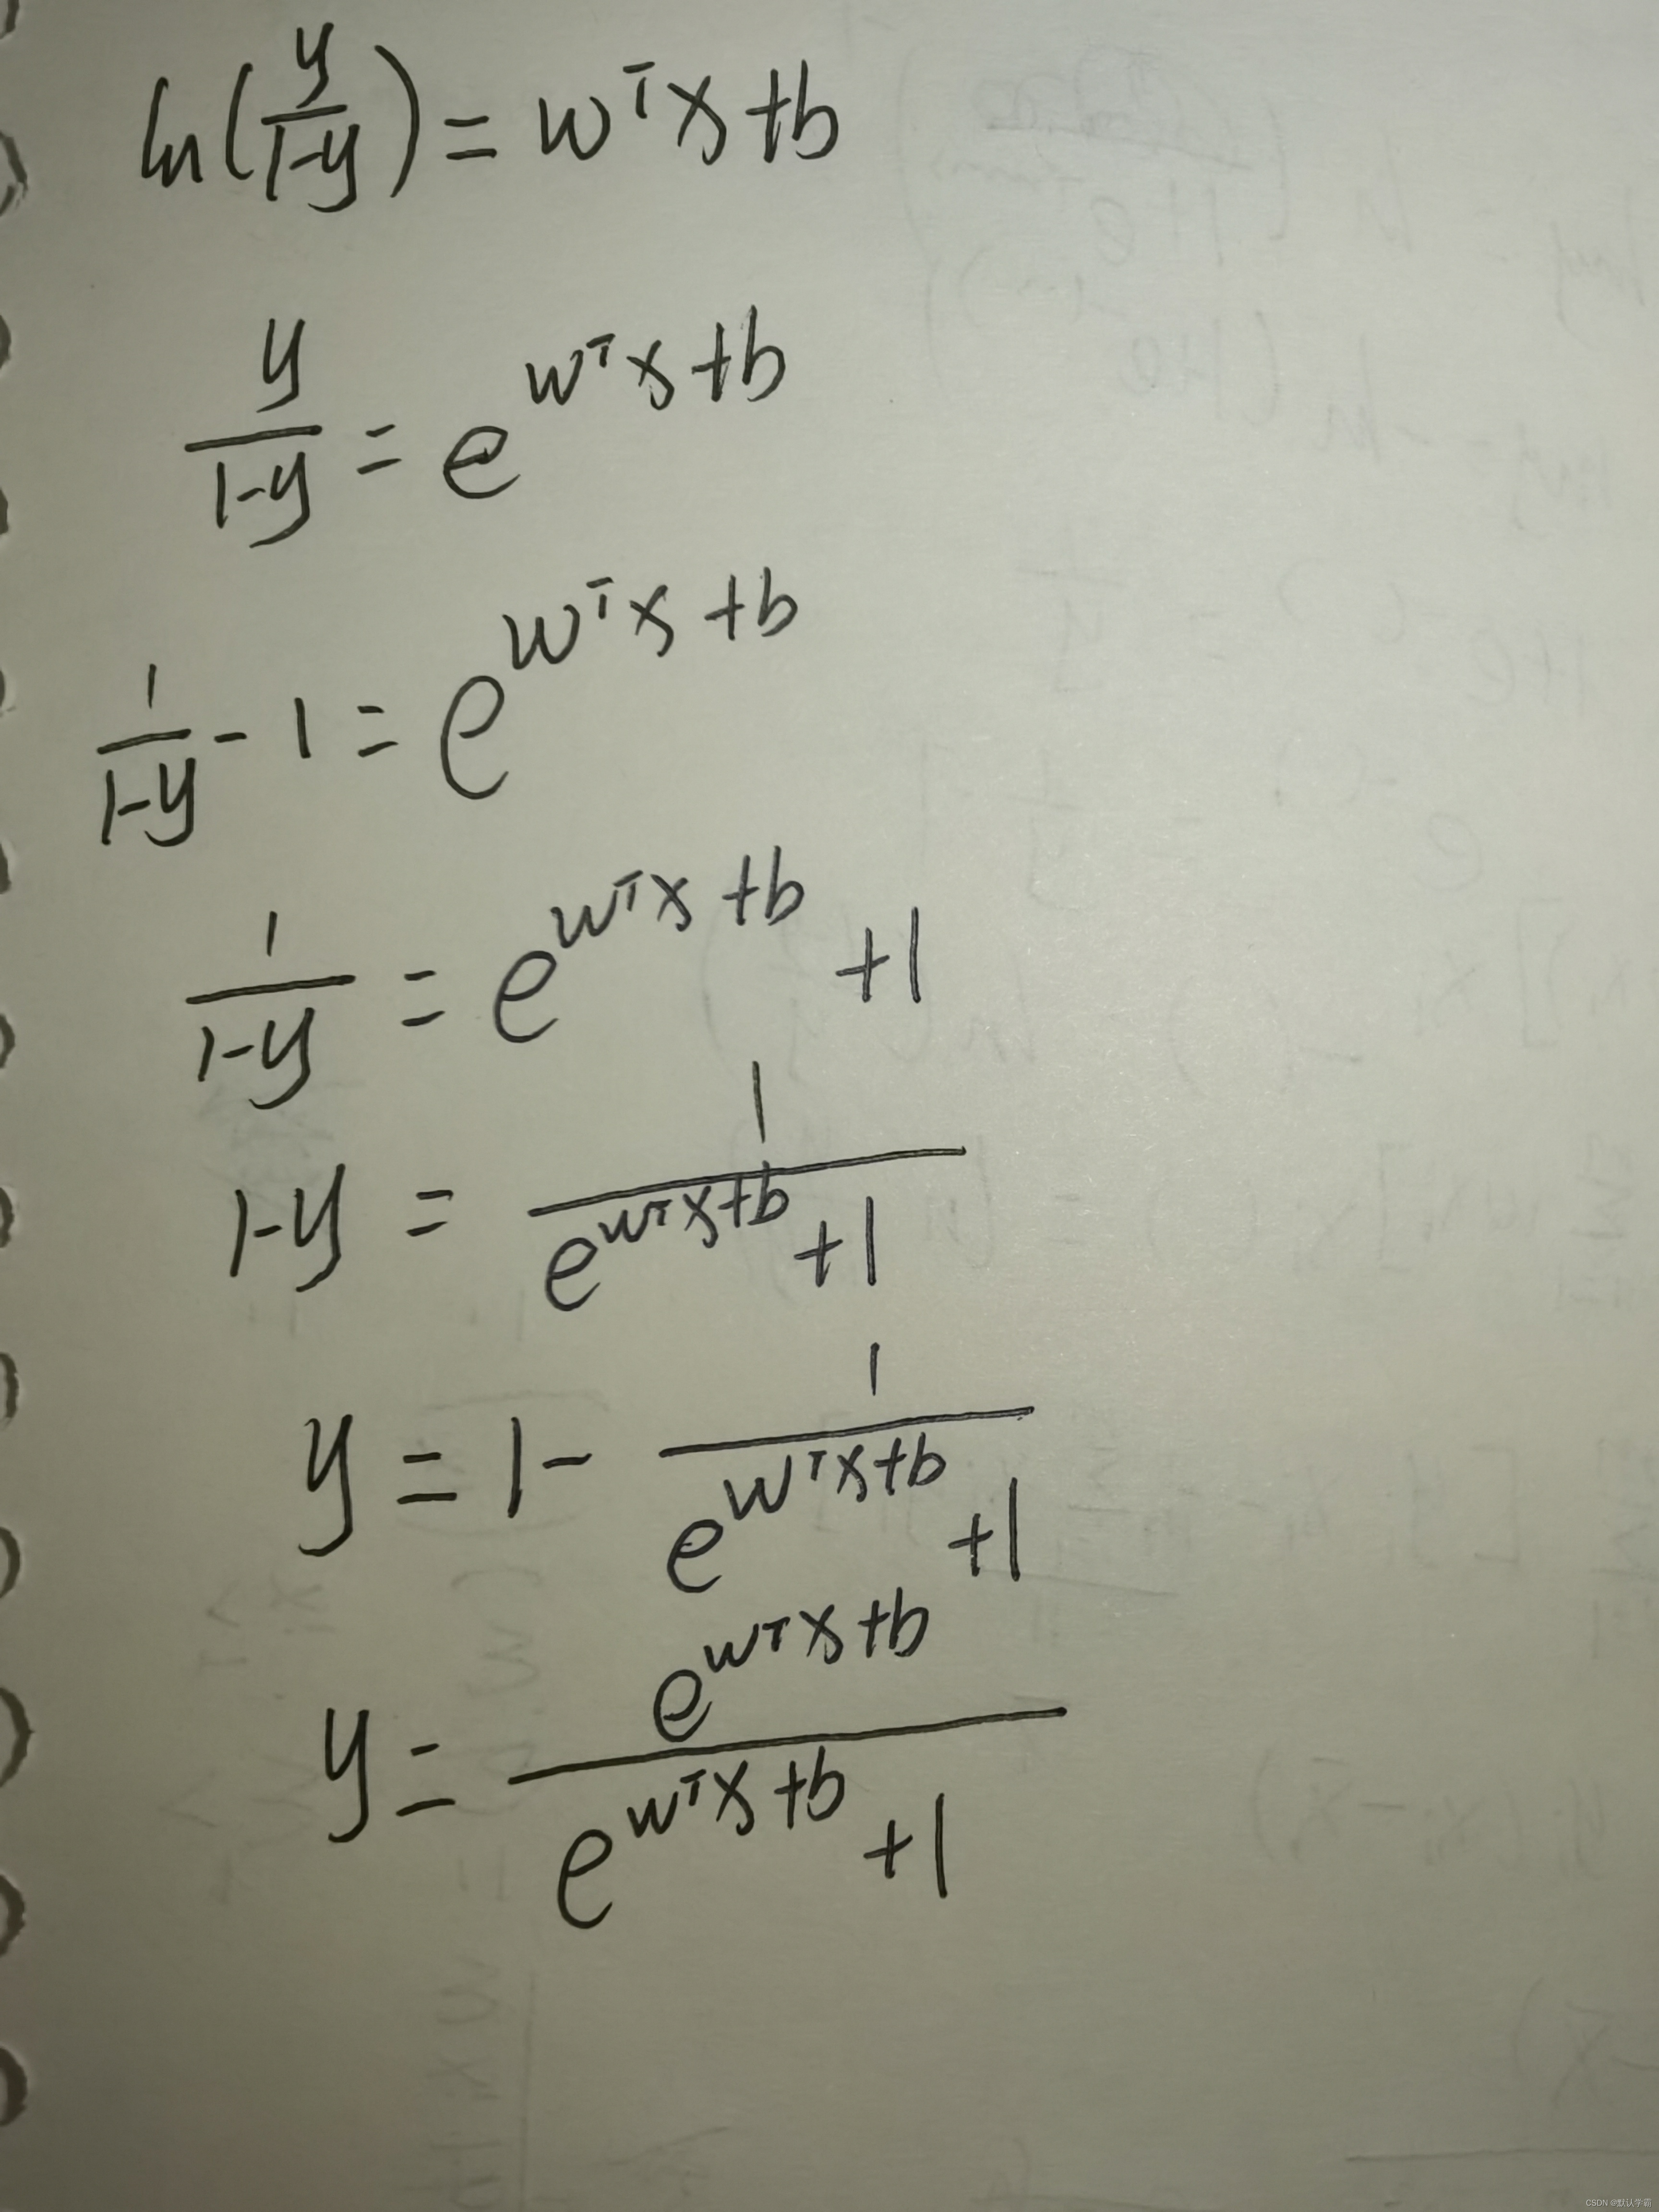 ln(y/(1-y)) = wᵀx+b
y/(1-y) = e^(wᵀx+b)
1/(1-y) - 1 = e^(wᵀx+b)
1/(1-y) = e^(wᵀx+b) +1
1-y = 1/(e^(wᵀx+b) +1)
y = 1- 1/(e^(wᵀx+b) +1)
y = e^(wᵀx+b)/(e^(wᵀx+b) +1)
CSDN @默认学霸